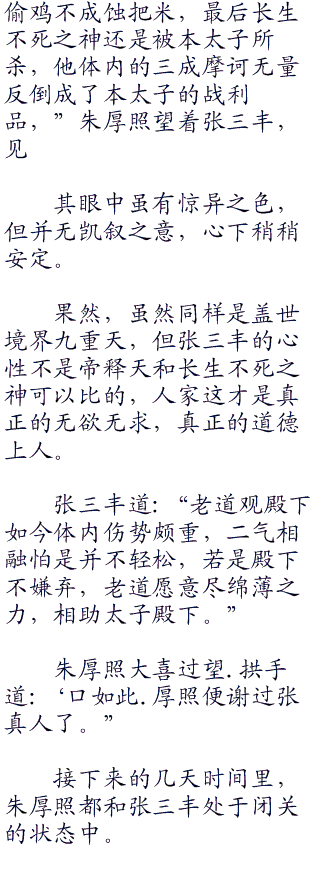 偷鸡不成蚀把米，最后长生
不死之神还是被本太子所
杀，他体内的三成摩诃无量
反倒成了本太子的战利
品，”朱厚照望着张三丰，
见
其眼中虽有惊异之色，
但并无凯叙之意，心下稍稍
安定。
果然，虽然同样是盖世
境界九重天，但张三丰的心
性不是帝释天和长生不死之
神可以比的，人家这才是真
正的无欲无求，真正的道德
上人。
张三丰道：“老道观殿下
如今体内伤势颇重，二气相
融怕是并不轻松，若是殿下
不嫌弃，老道愿意尽绵薄之
力，相助太子殿下。”
朱厚照大喜过望.拱手
道：‘口如此.厚照便谢过张
真人了。”
接下来的几天时间里，
朱厚照都和张三丰处于闭关
的状态中。